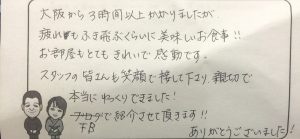 大阪から3時間以上かかりましたが、
疲れもふき飛ぶくらいに美味しいお食事!!
お部屋もとてもきれいで感動です。
スタッフの皆さんも笑顔で接して下さり、親切で
本当にゆっくりできました!
ブログで紹介させて頂きます!!
FB
ありがとうございました!